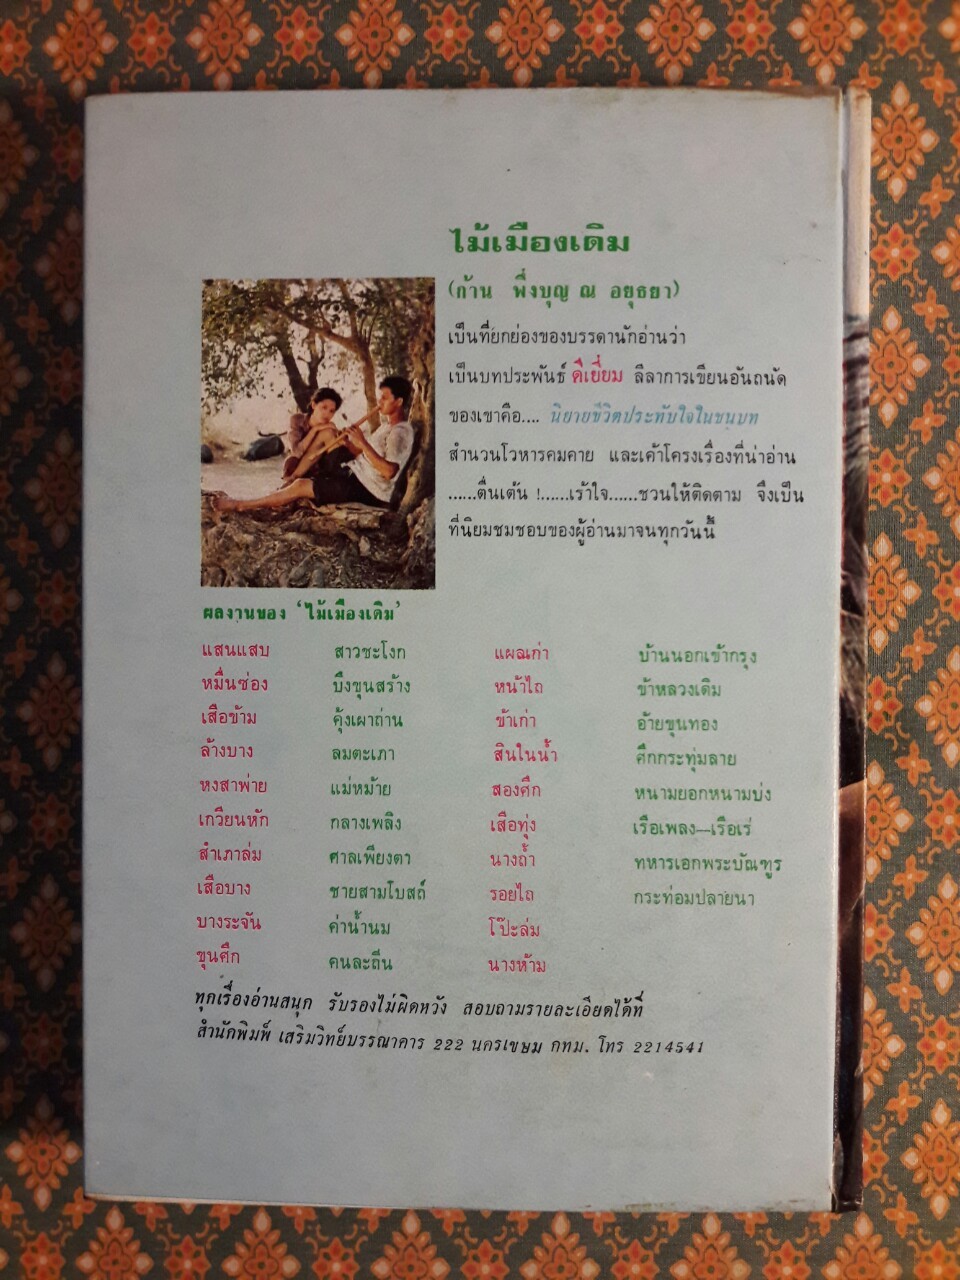 ไม้เมืองเดิม
(ก้าน พึ่งบุญ ณ อยุธยา)
เป็นที่ยกย่องของบรรดานักอ่านว่า
เป็นบทประพันธ์ ดีเยี่ยม ลีลาการเขียนอันถนัด
ของเขาคือ.... นิยายชีวิตประทับใจในชนบท
สำนวนโวหารคมคาย และเค้าโครงเรื่องที่น่าอ่าน
......ตื่นเต้น !......เร้าใจ......ชวนให้ติดตาม จึงเป็น
ที่นิยมชมชอบของผู้อ่านมาจนทุกวันนี้
ผลงานของ ‘ไม้เมืองเดิม’
แสนแสบ สาวชะโงก แผลเก่า บ้านนอกเข้ากรุง
หมื่นซ่อง บึงขุนสร้าง หน้าไถ ข้าหลวงเดิม
เสือข้าม คุ้งเผาถ่าน ข้าเก่า อ้ายขุนทอง
ล้างบาง ลมตะเภา สินในน้ำ ศึกกระทุ่มลาย
หงสาพ่าย แม่หม้าย สองศึก หนามยอกหนามบ่ง
เกวียนหัก กลางเพลิง เสือทุ่ง เรือเพลง—เรือเร่
สำเภาล่ม ศาลเพียงตา นางถ้ำ ทหารเอกพระบัณฑูร
เสือบาง ชายสามโบสถ์ รอยไถ กระท่อมปลายนา
บางระจัน ค่าน้ำนม โป๊ะล่ม
ขุนศึก คนละถิ่น นางห้าม
ทุกเรื่องอ่านสนุก รับรองไม่ผิดหวัง สอบถามรายละเอียดได้ที่
สำนักพิมพ์ เสริมวิทย์บรรณาคาร 222 นครเขษม กทม. โทร 2214541